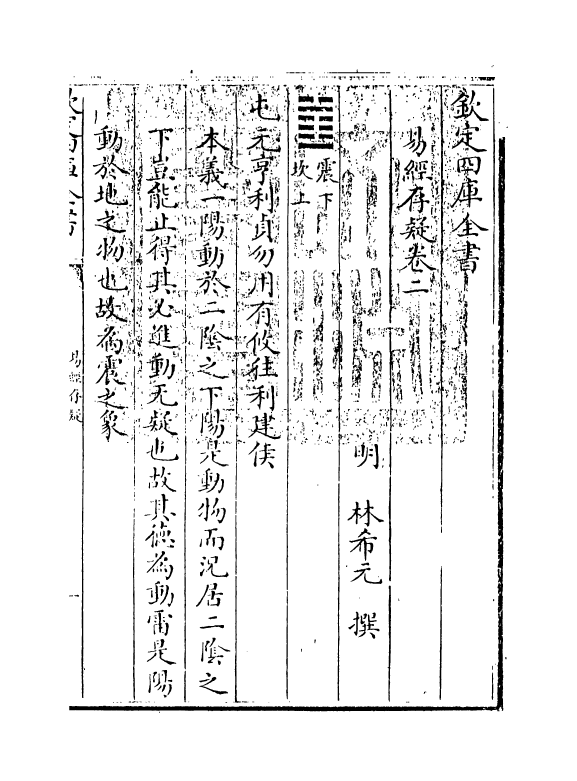 欽定四庫全書
易經存疑卷二
明 林希元 撰
震下
坎上
屯元亨利貞勿用有攸往利建侯
本義一陽動於二陰之下陽是動物而況居二陰之
下豈能止得其必進動无疑也故其德為動雷是陽
動於地之物也故為震之象
易經存疑
一